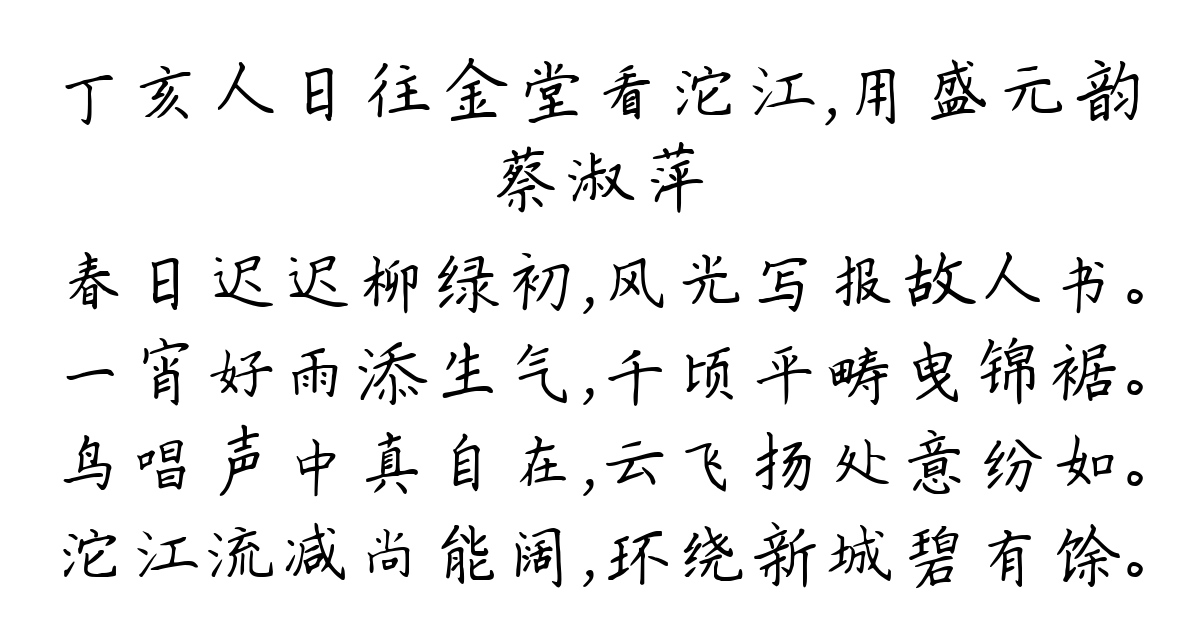 丁亥人日往金堂看沱江,用盛元韵
蔡淑萍
春日迟迟柳绿初,风光写报故人书。
一宵好雨添生气,千顷平畴曳锦裾。
鸟唱声中真自在,云飞扬处意纷如。
沱江流减尚能阔,环绕新城碧有馀。